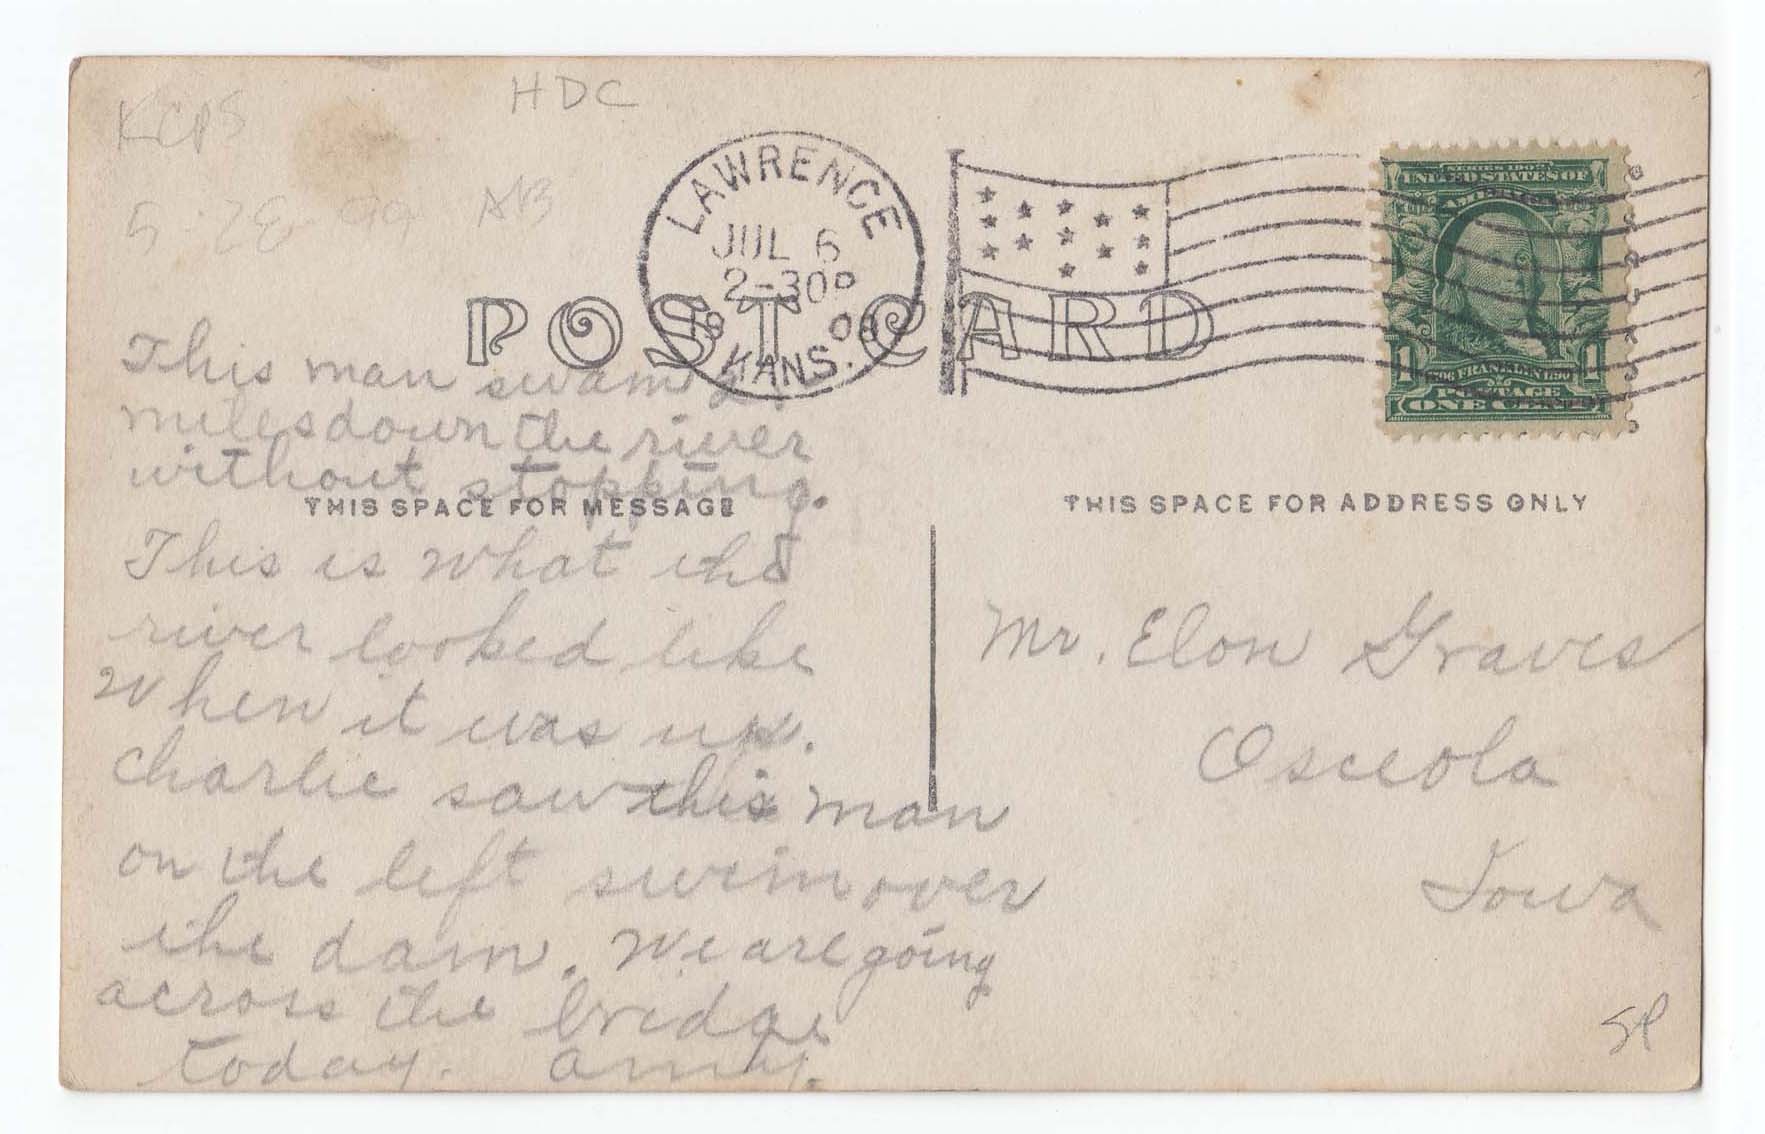 HDC
KCPS
5-28-99 AB
LAWRENCE
JUL 6
2-30P
19 08
KANS.
UNITED STATES OF
AMERICA
1706 FRANKLIN 1790
POSTAGE
1 1
ONE CENT
POST CARD
This man swam
miles down the river
without stopping.
THIS SPACE FOR MESSAGE
This is what the
river looked like
when it was up.
Charlie saw this man
on the left swim over
the dam. We are going
across the bridge
today. Amy.
THIS SPACE FOR ADDRESS ONLY
Mr. Elon Graves
Osceola
Iowa